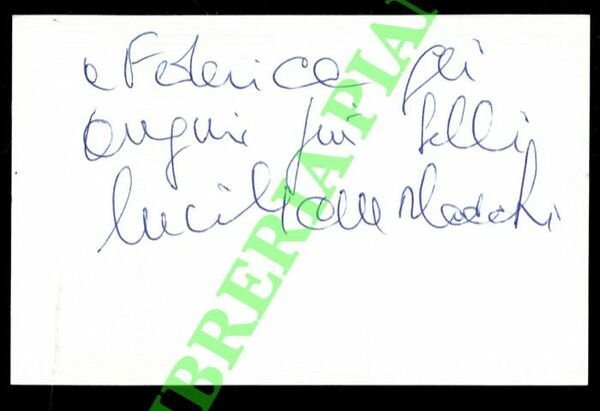 a Federica gli
auguri più belli
Lucilla Morlacchi
LIBRERIA PIAN